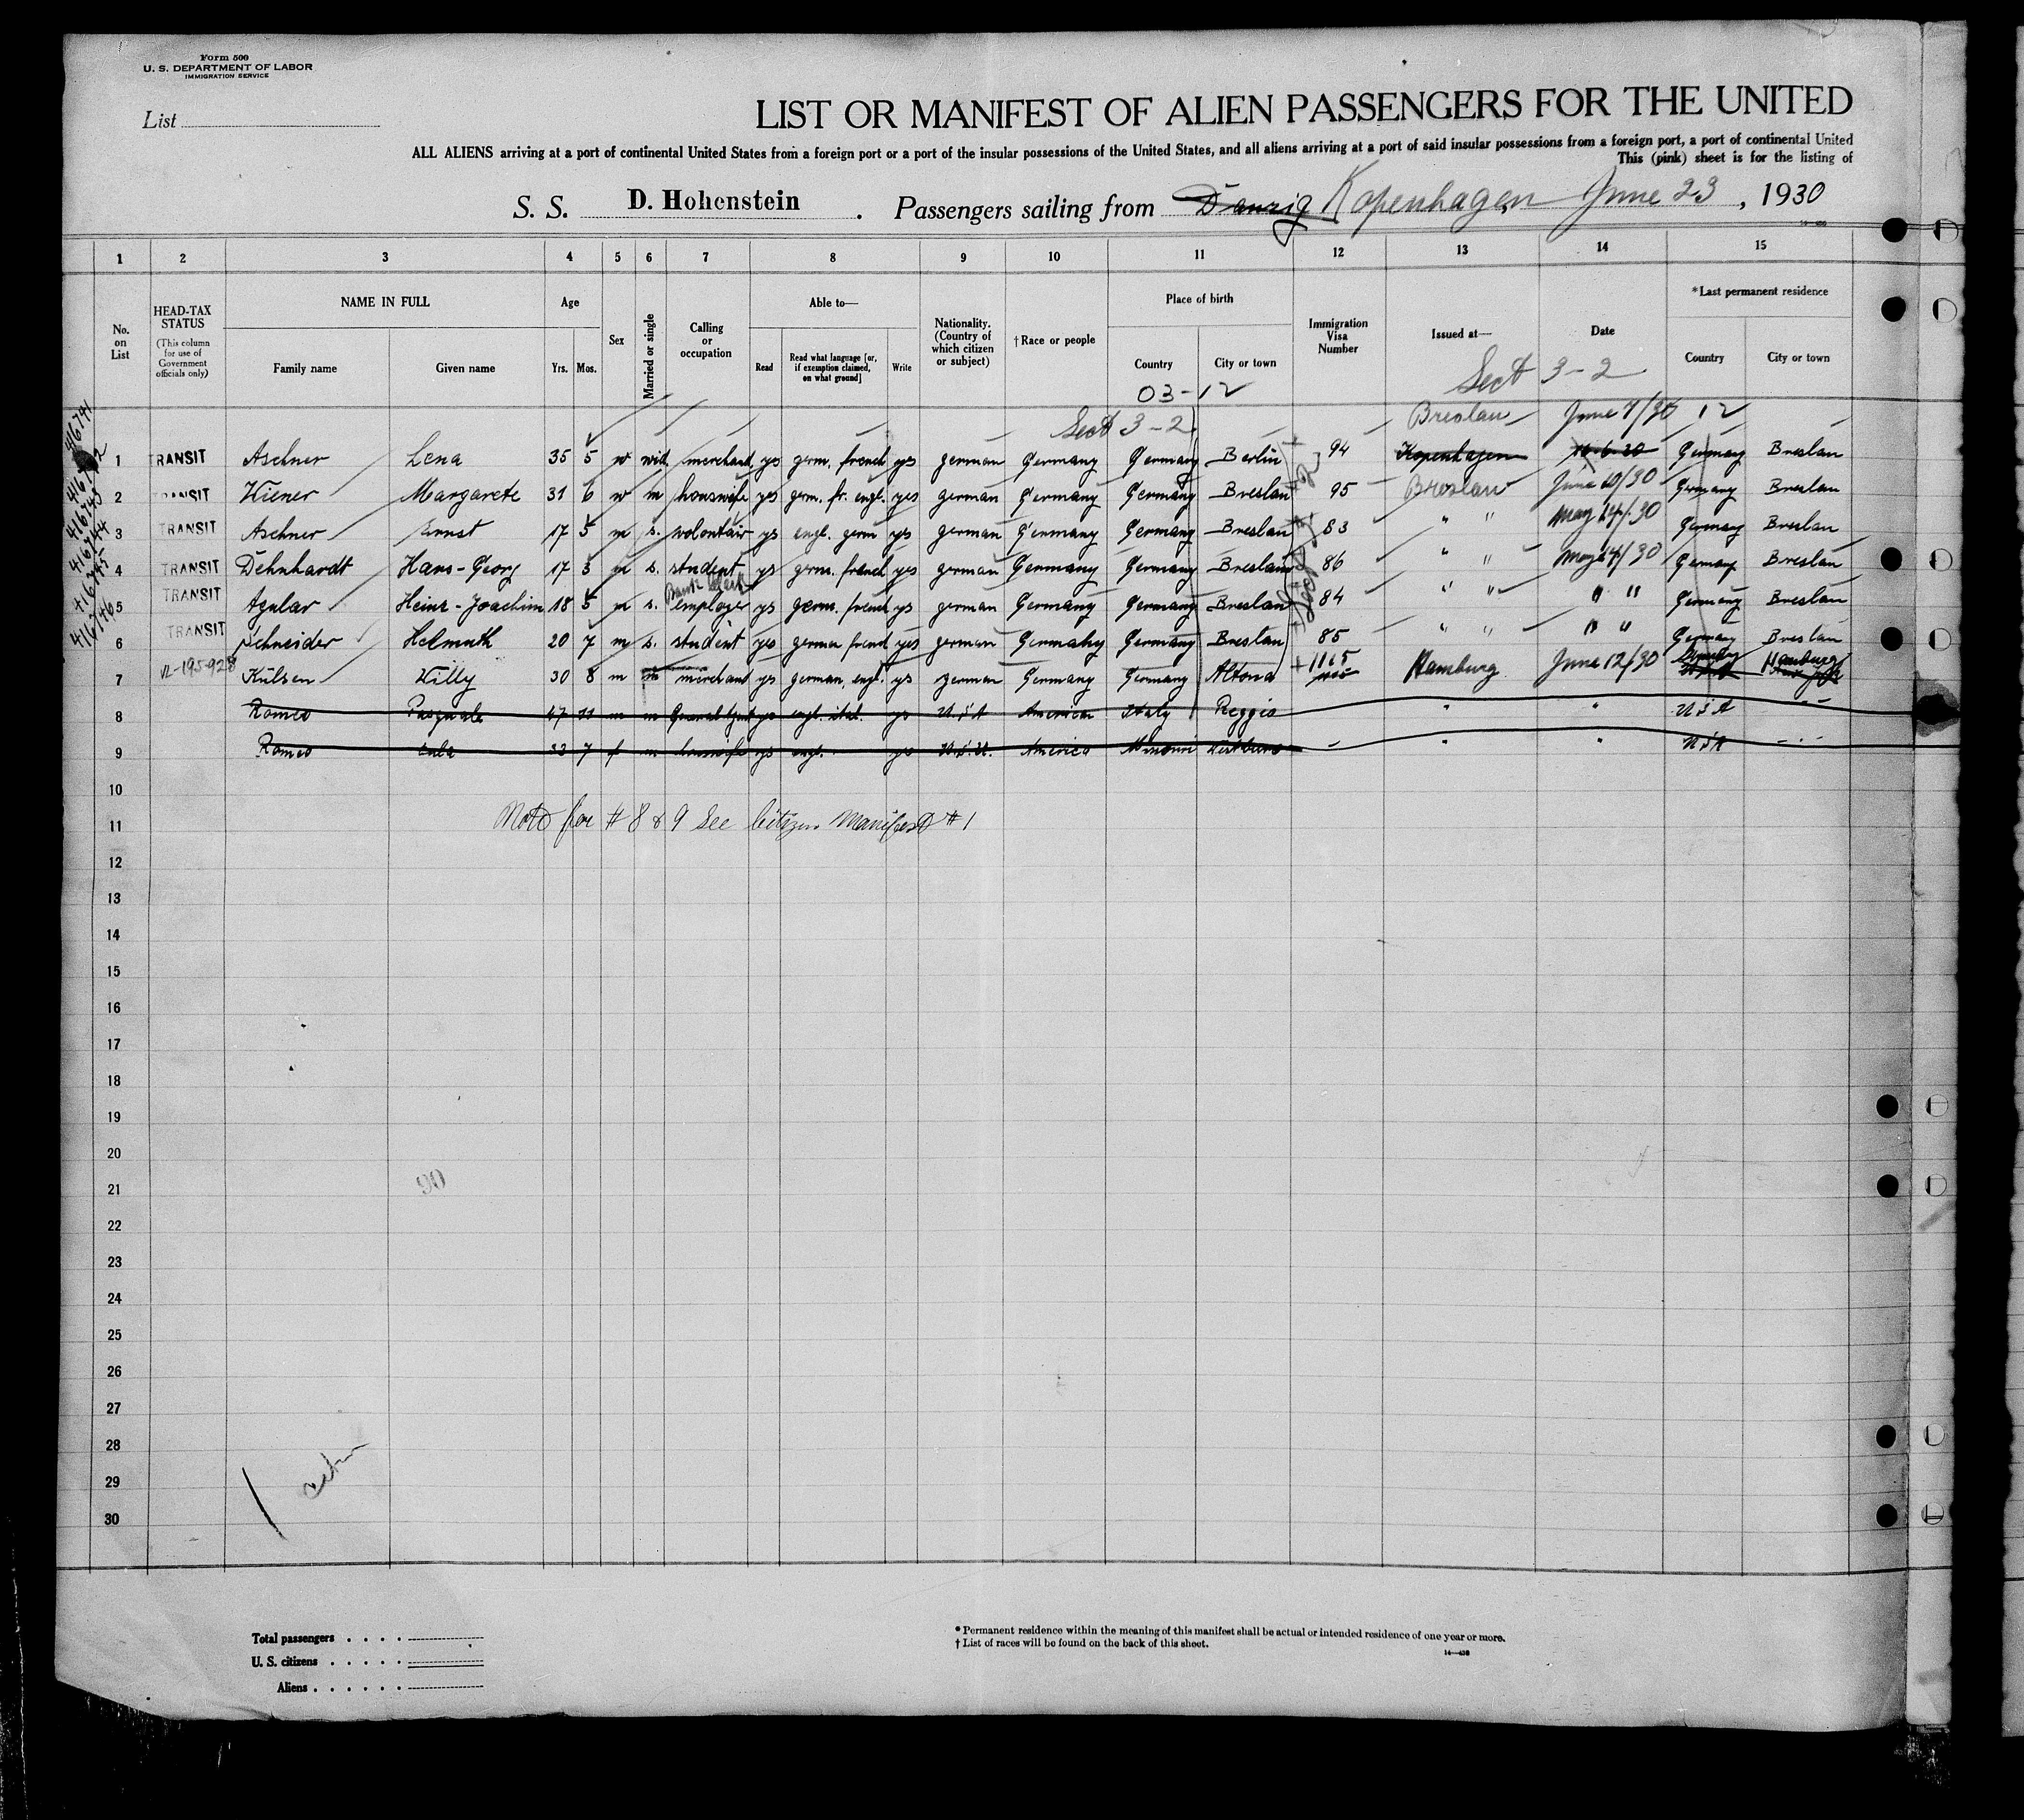 Form 500
U. S. DEPARTMENT OF LABOR
IMMIGRATION SERVICE
List
LIST OR MANIFEST OF ALIEN PASSENGERS FOR THE UNITED
ALL ALIENS arriving at a port of continental United States from a foreign port or a port of the insular possessions of the United States, and all aliens arriving at a port of said insular possessions from a foreign port, a port of continental United
This (pink) sheet is for the listing of
S. S. D. Hohenstein . Passengers sailing from Danzig Kopenhagen June 23, 1930
1 2 3 4 5 6 7 8 9 10 11 12 13 14 15
No. on List
HEAD-TAX STATUS (This column for use of Government officials only)
NAME IN FULL Family name Given name
Age Yrs. Mos.
Sex
Married or single
Calling or occupation
Able to— Read Read what language [or, if exemption claimed, on what ground] Write
Nationality. (Country of which citizen or subject)
†Race or people
Place of birth Country City or town
Immigration Visa Number
Issued at—
Date
*Last permanent residence Country City or town
03-12
Sect 3-2
Sect 3-2 Breslau June 7/30 12
1 TRANSIT Aschner Lena 35 5 w wid. merchand yes germ. french yes german Germany Germany Berlin 94 Kopenhagen Germany Breslau
2 TRANSIT Wiener Margarete 31 6 w m houswife yes germ. fr. engl. yes german Germany Germany Breslau 95 Breslau June 10/30 Germany Breslau
3 TRANSIT Aschner Ernst 17 5 m s. volontair ys engl. germ yes german Germany Germany Breslau 83 " " May 14/30 Germany Breslau
4 TRANSIT Dehnhardt Hans-Georg 17 3 m s. student ys germ. french yes german Germany Germany Breslau 86 " " May 14/30 Germany Breslau
Bank Clerk
5 TRANSIT Heinz-Joachim 18 5 m s. employer ys germ. french ys german Germany Germany Breslau 84 " " " " Germany Breslau
6 TRANSIT Schneider Helmuth 20 7 m s. student yes german french yes german Germany Germany Breslau 85 " " " " Germany Breslau
7 Külsen Willy 30 8 m m merchand ys german, engl. ys german Germany Germany Altona 1165 Hamburg June 12/30 Germany Hamburg
8 Romeo Pasquale 47 11 m m General Agent ys engl. ital. ys U.S.A American Italy Reggio " " U S A
9 Romeo 33 7 f m housewife ys engl. ys U.S.A. America Missouri " " U S A
10
Note for # 8 & 9 See Citizen Manifest # 1
11
12
13
14
15
16
17
18
19
20
90
21
22
23
24
25
26
27
28
29
30
Total passengers
U. S. citizens
Aliens
* Permanent residence within the meaning of this manifest shall be actual or intended residence of one year or more.
† List of races will be found on the back of this sheet.